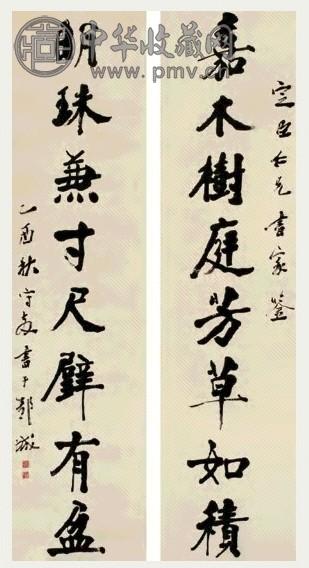 中华收藏网
www.pmv.cn
仁兄書家鑒
嘉木樹庭芳草如積
明珠兼寸尺璧有盈
乙酉秋守書于